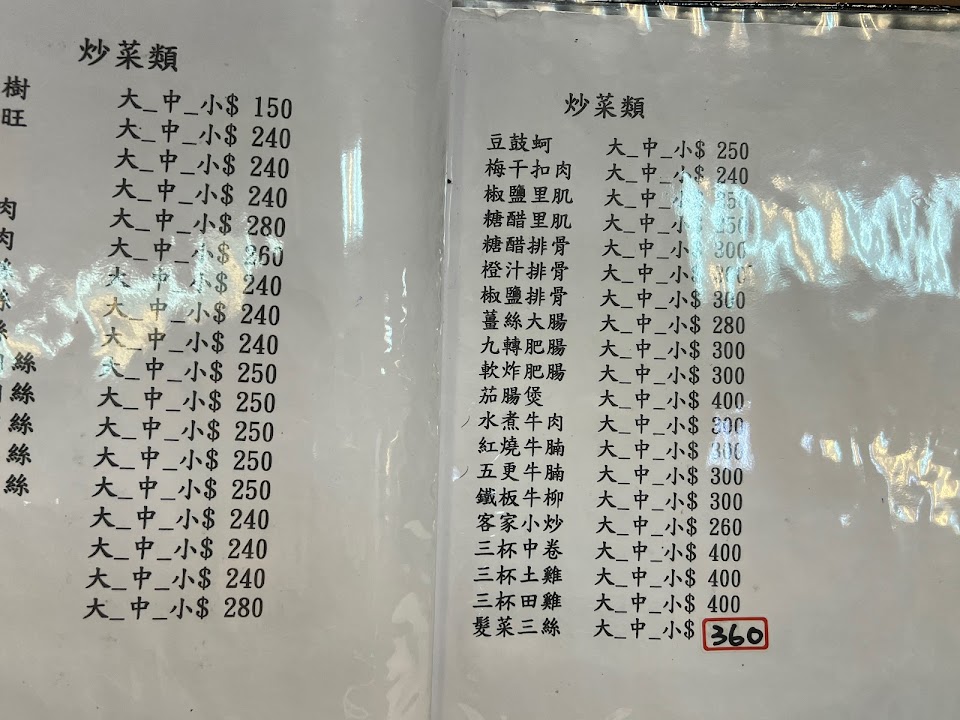 炒菜類
樹
旺
大_中_小$ 150
大_中_小$ 240
大_中_小$ 240
大_中_小$ 240
肉 大_中_小$ 280
肉 大_中_小$ 260
大_中_小$ 240
大_中_小$ 240
大_中_小$ 240
絲 大_中_小$ 250
絲 大_中_小$ 250
絲 大_中_小$ 250
絲 大_中_小$ 250
絲 大_中_小$ 250
大_中_小$ 240
大_中_小$ 240
大_中_小$ 240
大_中_小$ 280
炒菜類
豆鼓蚵 大_中_小$ 250
梅干扣肉 大_中_小$ 240
椒鹽里肌 大_中_小$ 250
糖醋里肌 大_中_小$ 250
糖醋排骨 大_中_小$ 300
橙汁排骨 大_中_小$ 300
椒鹽排骨 大_中_小$ 300
薑絲大腸 大_中_小$ 280
九轉肥腸 大_中_小$ 300
軟炸肥腸 大_中_小$ 300
茄腸煲 大_中_小$ 400
水煮牛肉 大_中_小$ 300
紅燒牛腩 大_中_小$ 300
五更牛腩 大_中_小$ 300
鐵板牛柳 大_中_小$ 300
客家小炒 大_中_小$ 260
三杯中卷 大_中_小$ 400
三杯土雞 大_中_小$ 400
三杯田雞 大_中_小$ 400
髮菜三絲 大_中_小$ 360